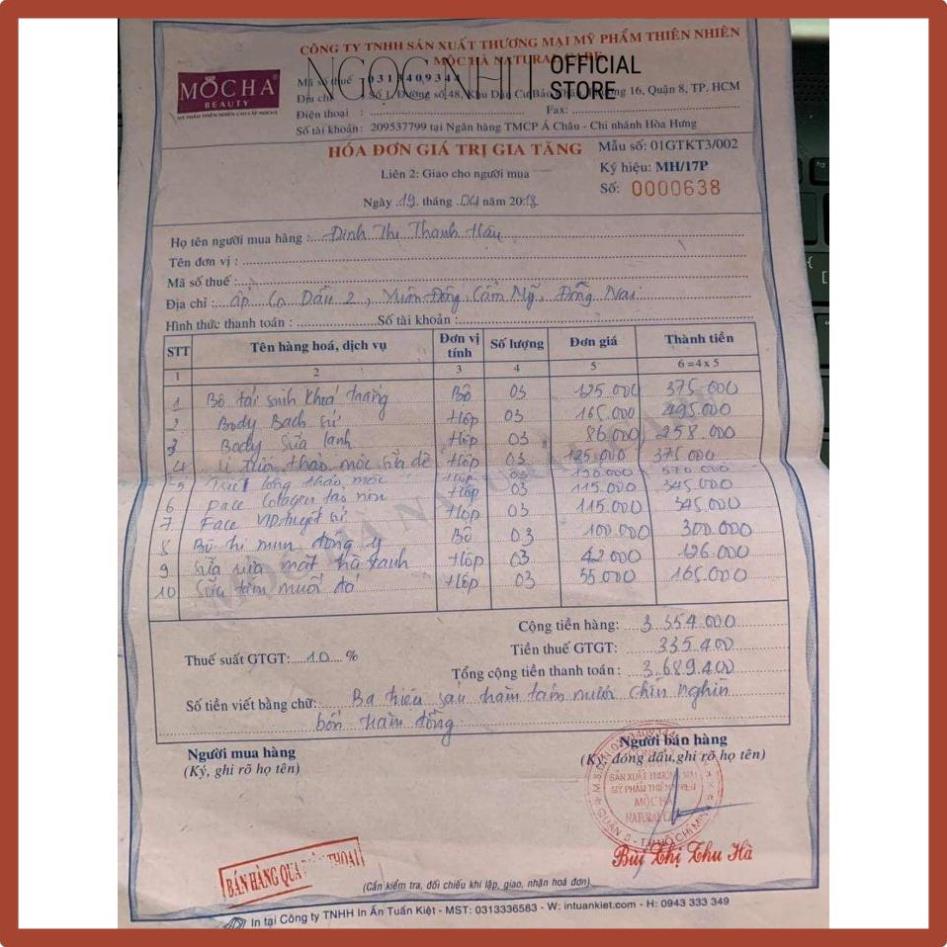 CÔNG TY TNHH SẢN XUẤT THƯƠNG MẠI MỸ PHẨM THIÊN NHIÊN
MỘC HÀ NATURAL CARE
NGỌC NHU OFFICIAL STORE
MOCHA
BEAUTY
Mã số thuế : 0313409344
Địa chỉ : Số 1, Đường số 48, Khu Dân Cư Bảo Phường 16, Quận 8, TP. HCM
Điện thoại : Fax:
Số tài khoản : 209537799 tại Ngân hàng TMCP Á Châu - Chi nhánh Hòa Hưng
HÓA ĐƠN GIÁ TRỊ GIA TĂNG
Mẫu số: 01GTKT3/002
Liên 2: Giao cho người mua
Ký hiệu: MH/17P
Số: 0000638
Ngày 19 tháng 04 năm 2018
Họ tên người mua hàng : Đinh Thị Thanh Hậu
Tên đơn vị :
Mã số thuế :
Địa chỉ : ấp Cọ Dầu 2, Xuân Đông, Cẩm Mỹ, Đồng Nai
Hình thức thanh toán : Số tài khoản :
STT Tên hàng hoá, dịch vụ Đơn vị tính Số lượng Đơn giá Thành tiền
1 2 3 4 5 6 = 4 x 5
1 Bộ tái sinh khoá trắng Bộ 03 125.000 375.000
2 Body Bạch sứ Hộp 03 165.000 495.000
3 Body Sữa lạnh Hộp 03 86.000 258.000
4 thảo mộc sữa dê Hộp 03 125.000 375.000
5 lông thảo mộc Hộp 03 570.000
6 Face Colagen tảo non Hộp 03 115.000 345.000
7 Face VIP tuyết sứ Hộp 03 115.000 345.000
8 Bộ trị mụn đông y Bộ 03 100.000 300.000
9 Sữa rửa mặt trà xanh Hộp 03 42.000 126.000
10 Sữa tắm muối đỏ Hộp 03 55.000 165.000
Cộng tiền hàng: 3.354.000
Thuế suất GTGT: 10 % Tiền thuế GTGT: 335.400
Tổng cộng tiền thanh toán : 3.689.400
Số tiền viết bằng chữ: Ba triệu sáu trăm tám mươi chín nghìn
bốn trăm đồng
Người mua hàng
(Ký, ghi rõ họ tên)
Người bán hàng
(Ký, đóng dấu, ghi rõ họ tên)
SẢN XUẤT THƯƠNG MẠI
MỸ PHẨM THIÊN NHIÊN
MỘC HÀ
NATURAL CARE
QUẬN 8 - TP HỒ CHÍ MINH
Bùi Thị Thu Hà
BÁN HÀNG QUA ĐIỆN THOẠI
(Cần kiểm tra, đối chiếu khi lập, giao, nhận hoá đơn)
In tại Công ty TNHH In Ấn Tuấn Kiệt - MST: 0313336583 - W: intuankiet.com - H: 0943 333 349